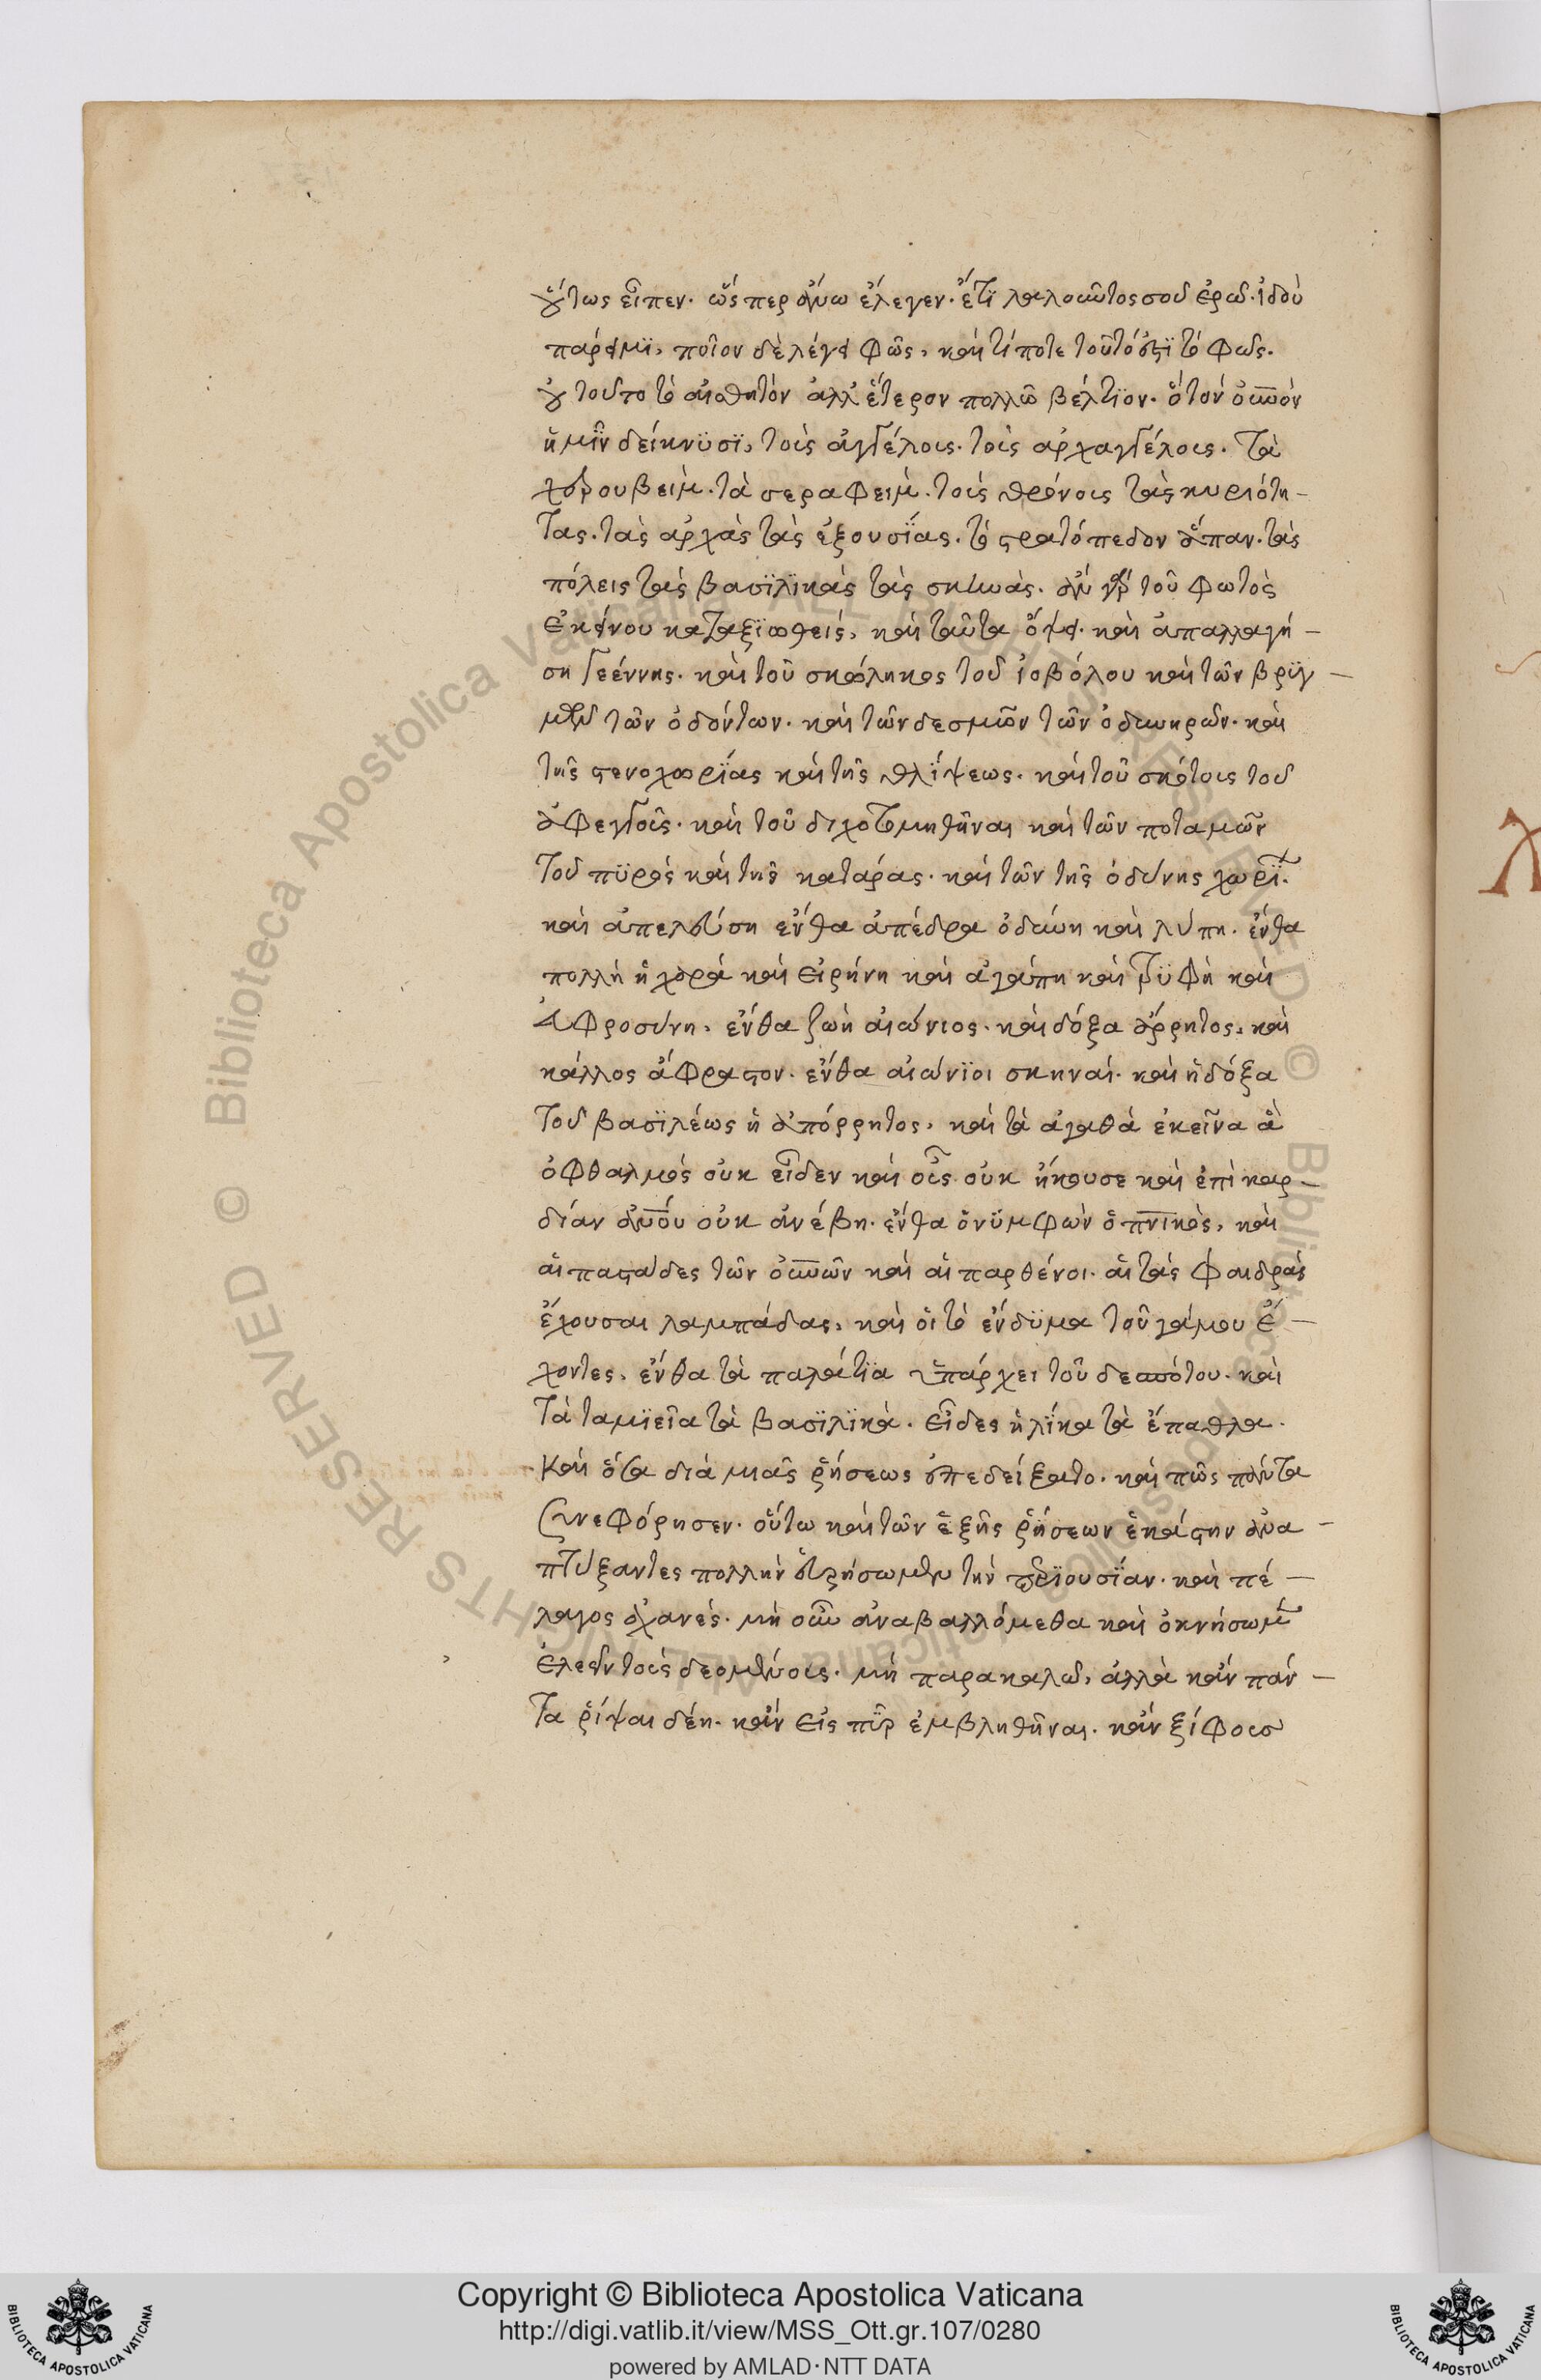 οὕτως εἶπεν. ὥσπερ ἄνω ἔλεγεν. ἔτϊ λαλοῦντος σοῦ ἐρῶ. ἰδοὺ
πάρειμϊ, ποῖον δὲ λέγει φῶς, καὶ τί ποτε τοῦτό ἐστϊ τὸ φῶς.
οὐ τοῦτο τὸ αἰσθητὸν ἀλλ' ἕτερον πολλῶ βέλτϊον. ὃ τὸν οὐνὸν
ἡμῖν δείκνϋσϊ, τοὺς ἀγγέλους. τοὺς ἀρχαγγέλους. τὰ
χερουβεὶμ. τὰ σεραφεὶμ. τοὺς θρόνους τὰς κυριότη-
τας. τὰς ἀρχὰς τὰς ἐξουσΐας. τὸ στρατόπεδον ἅπαν. τὰς
πόλεις τὰς βασϊλϊκὰς τὰς σκηνὰς. ἂν γὰρ τοῦ φωτὸς
ἐκείνου καταξϊωθεὶς, καὶ ταῦτα ὄψει. καὶ ἀπαλλαγή-
ση γεέννης. καὶ τοῦ σκώληκος τοῦ ἰοβόλου καὶ τῶν βρϋγ-
μῶν τῶν ὀδόντων. καὶ τῶν δεσμῶν τῶν ὀδυνηρῶν. καὶ
τῆς στενοχωρΐας καὶ τῆς θλΐψεως. καὶ τοῦ σκότους τοῦ
ἀφεγγοῦς. καὶ τοῦ διχοτομηθῆναι καὶ τῶν ποταμῶν
τοῦ πϋρὸς καὶ τῆς κατάρας. καὶ τῶν τῆς ὀδύνης χωρΐ.
καὶ ἀπελεύση ἔνθα ἀπέδρα ὀδύνη καὶ λύπη. ἔνθα
πολλὴ ἡ χαρὰ καὶ εἰρήνη καὶ ἀγάπη καὶ τρϋφὴ καὶ
εὐφροσύνη, ἔνθα ζωὴ αἰώνιος. καὶ δόξα ἄρρητος, καὶ
κάλλος ἄφραστον. ἔνθα αἰώνϊοι σκηναί. καὶ ἡ δόξα
τοῦ βασϊλέως ἡ ἀπόρρητος, καὶ τὰ ἀγαθὰ ἐκεῖνα ἃ
ὀφθαλμὸς οὐκ εἶδεν καὶ οὖς οὐκ ἤκουσε καὶ ἐπὶ καρ-
δίαν ἀνου οὐκ ἀνέβη. ἔνθα ὁ νϋμφὼν ὁ πνικὸς, καὶ
αἱ παστάδες τῶν οὐνῶν καὶ αἱ παρθένοι. αἱ τὰς φαιδρὰς
ἔχουσαι λαμπάδας, καὶ οἱ τὸ ἔνδϋμα τοῦ γάμου ἔ-
χοντες, ἔνθα τὰ παλάτϊα ὑπάρχει τοῦ δεσπότου. καὶ
τὰ ταμϊεῖα τὰ βασϊλϊκά. εἶδες ἡλΐκα τὰ ἔπαθλα.
καὶ ὅσα διὰ μιᾶς ῥήσεως ὑπεδείξατο. καὶ πῶς πάντα
συνεφόρησεν. οὕτω καὶ τῶν ἑξῆς ῥήσεων ἑκάστην ἀνα-
πτύξαντες πολλὴν εὑρήσωμεν τὴν περϊουσΐαν. καὶ πέ-
λαγος ἀχανές. μὴ οὖν ἀναβαλλόμεθα καὶ ὀκνήσωμ
ἐλεεῖν τοὺς δεομένους. μὴ παρακαλῶ, ἀλλὰ κἂν πάν-
τα ῥίψαι δέη. κἂν εἰς πῦρ ἐμβληθῆναι. κἂν ξίφους
Copyright © Biblioteca Apostolica Vaticana
http://digi.vatlib.it/view/MSS_Ott.gr.107/0280
powered by AMLAD·NTT DATA